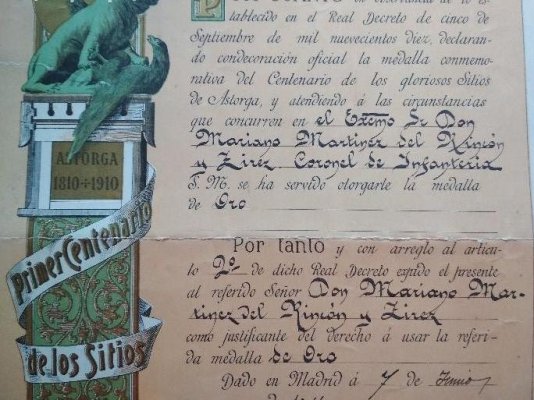 ASTORGA
1810÷1910
Primer Centenario
de los Sitios
tablecido en el Real Decreto de cinco de
Septiembre de mil nuevecientos diez, declaran-
do condecoración oficial la medalla conmemo-
rativa del Centenario de los gloriosos Sitios
de Astorga, y atendiendo á las circunstancias
que concurren en el Excmo Sr Don
Mariano Martinez del Rincón
y Zirez Coronel de Infanteria
S. M. se ha servido otorgarle la medalla
de Oro
Por tanto y con arreglo al articu-
lo 2º de dicho Real Decreto expido el presente
al referido Señor Don Mariano Mar-
tinez del Rincón y Zirez
como justificante del derecho á usar la referi-
da medalla de Oro
Dado en Madrid á 7 de Junio